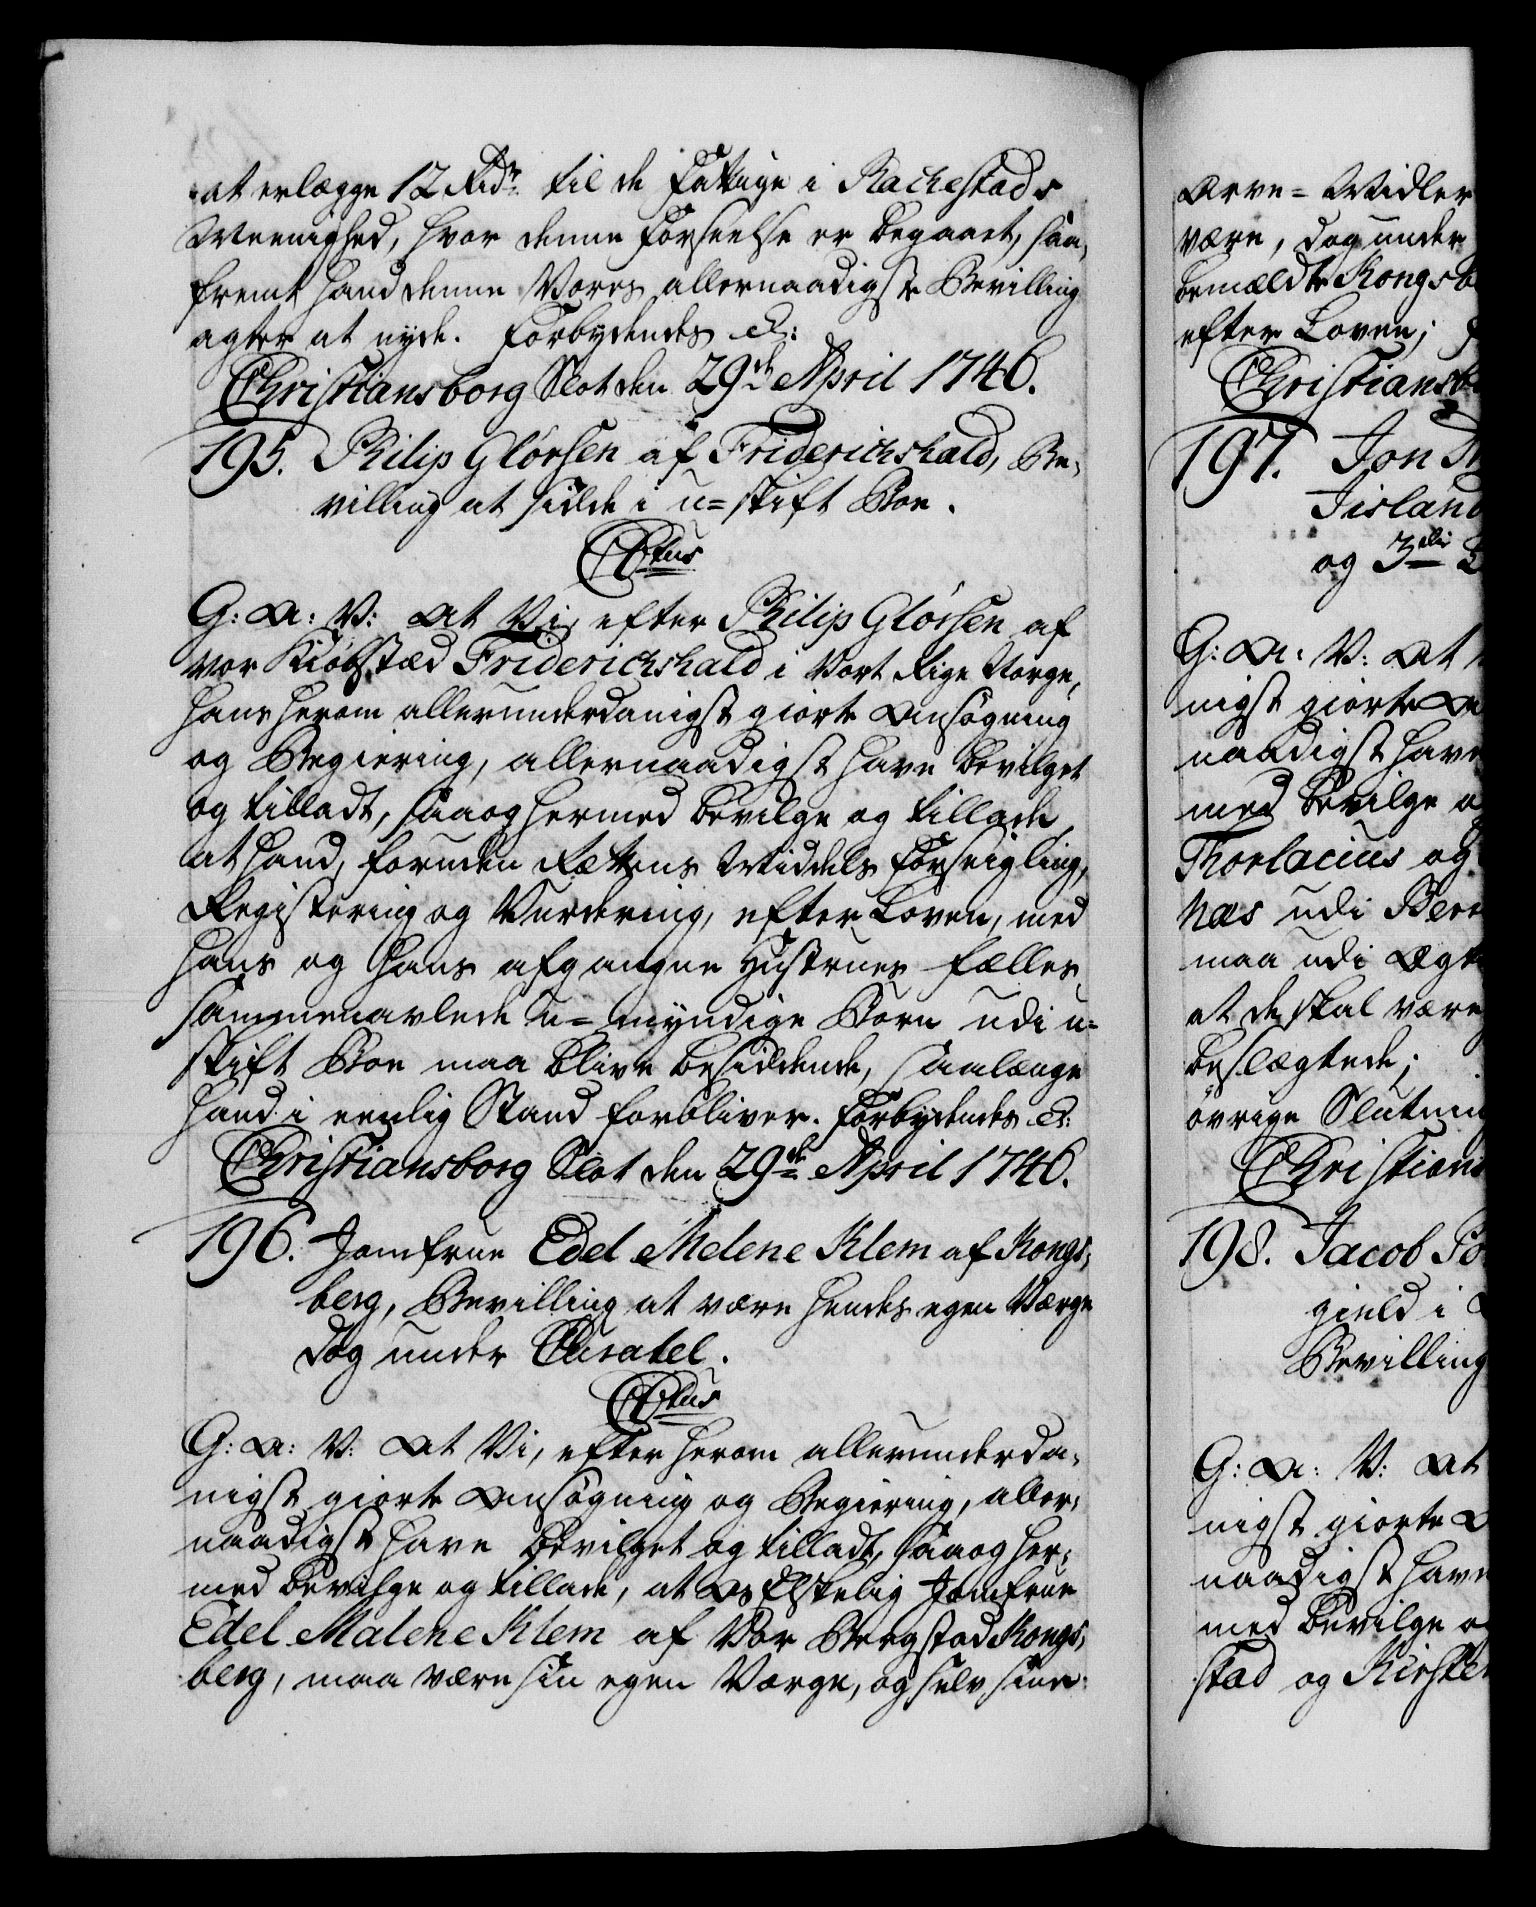 at erlægge 12 Rdr. til de Fattige i Rachestads
Meenighed, hvor denne Forseelse er begaaet, saa-
fremt hand denne Vores allernaadigste Bevilling
agter at nyde. Forbydendes &:
Christiansborg Slot den 29de April 1746.
195. Philip Glørsen af Friderichshald, Be-
villing at sidde i u-skift Boe.
Ctus
G: A: V: At Vi, efter Philip Glörsen af
vor Kiøbstæd Friderichshald i Vort Rige Norge,
hans herom allerunderdanigst giorte Ansøgning
og Begiering, allernaadigst have bevilget
og tilladt, saa og hermed bevilge og tillade,
at hand, foruden Rættens Middels Forseigling,
Registering og Vurdering, efter Loven, med
hans og hans afgangne Hustrues fælles
sammenavlede u-myndige Børn udi u-
skift Boe maa blive besiddende, saalænge
hand i eenlig Stand forbliver. Forbydendes &:
Christiansborg Slot den 29de April 1746.
196. Jomfrue Edel Melene Klem af Kongs-
berg, Bevilling at være hendes egen Værge
dog under Curatel.
Ctus
G: A: V: At Vi, efter herom allerunderda-
nigst giorte Ansøgning og Begiering, aller-
naadigst have bevilget og tilladt, saa og her-
med bevilge og tillade, at Os Elskelig Jomfrue
Edel Malene Klem af Vor Bergstad Kongs-
berg, maa være sin egen Værge, og selv sine
Arve-Midler
være, dog under
bemældte Kongsb
efter Loven;
Christiansb
197. Jon
Jisland
og 3die
G: A: V: At
nigst giorte An
naadigst have
med bevilge o
Thorlacius og
næs udi Ber
maa udi Ægt
at de skal være
beslægtede;
øvrige Slutning
Christians
198. Jacob
gield i
Bevilling
G: A: V: At
nigst giorte
naadigst have
med bevilge o
stad og Kirsten